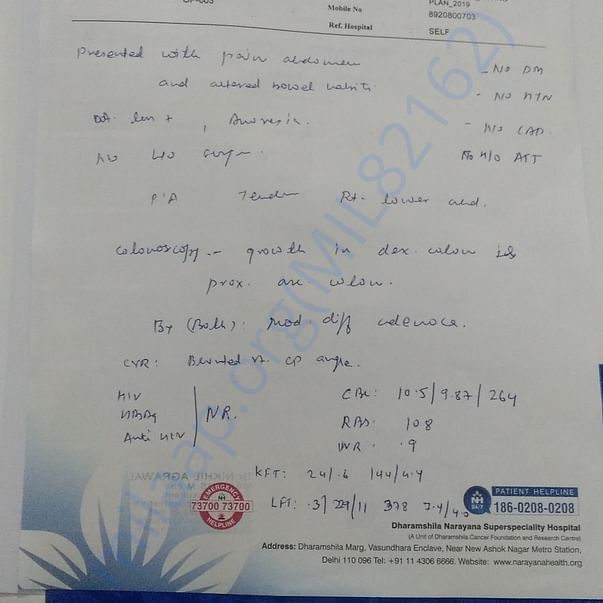 PLAN_2019
Mobile No 8920800703
Ref. Hospital : SELF
Presented with pain abdomen - No DM
and altered bowel habits - No HTN
loss +, Anorexia. - No CAD
No H/o surgery. No H/o ATT
P/A Tender Rt. lower abd.
Colonoscopy - growth in des. colon
prox. asc colon.
Bx (Both): mod. diff adenoca.
CXR: Blunted rt. CP angle.
HIV CBC: 10.5/9.87/264
HBsAg NR. RBS: 108
INR . 9
KFT: 24/.6 144/4.4
LFT: .3/29/11 378 7.4/
EMERGENCY
NH
73700 73700
HELPLINE
NH
24/7
PATIENT HELPLINE
186-0208-0208
Dharamshila Narayana Superspeciality Hospital
(A Unit of Dharamshila Cancer Foundation and Research Centre)
Address: Dharamshila Marg, Vasundhara Enclave, Near New Ashok Nagar Metro Station,
Delhi 110 096 Tel: +91 11 4306 6666. Website: www.narayanahealth.org
milaap.org(MIL82162)